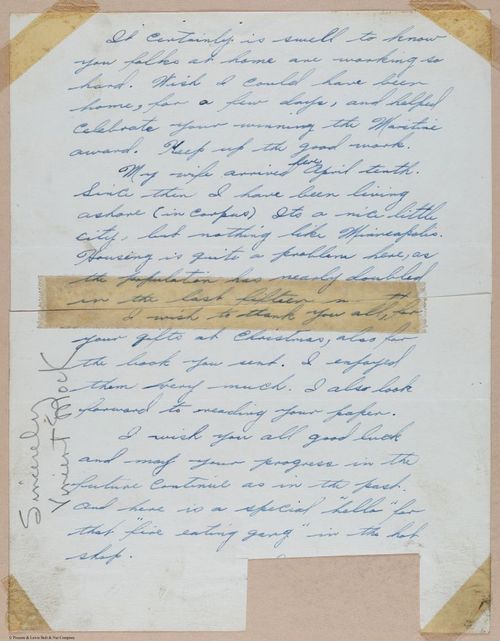 It certainly is swell to know
you folks at home are working so
hard. Wish I could have been
home, for a few days, and helped
celebrate your winning the Maritime
award. Keep up the good work.
My wife arrived here April tenth.
Since then I have been living
ashore (in corpus) Its a nice little
city, but nothing like Minneapolis.
Housing is quite a problem here, as
the population has nearly doubled
in the last fifteen
I wish to thank you all, for
your gifts at Christmas, also for
the book you sent. I enjoyed
them very much. I also look
forward to reading your paper.
I wish you all good luck
and may your progress in the
future continue as in the past.
And here is a special "hello" for
that "fire eating gang" in the hot
shop.
Sincerely
Vincent
© Preston & Lewis Bolt & Nut Company